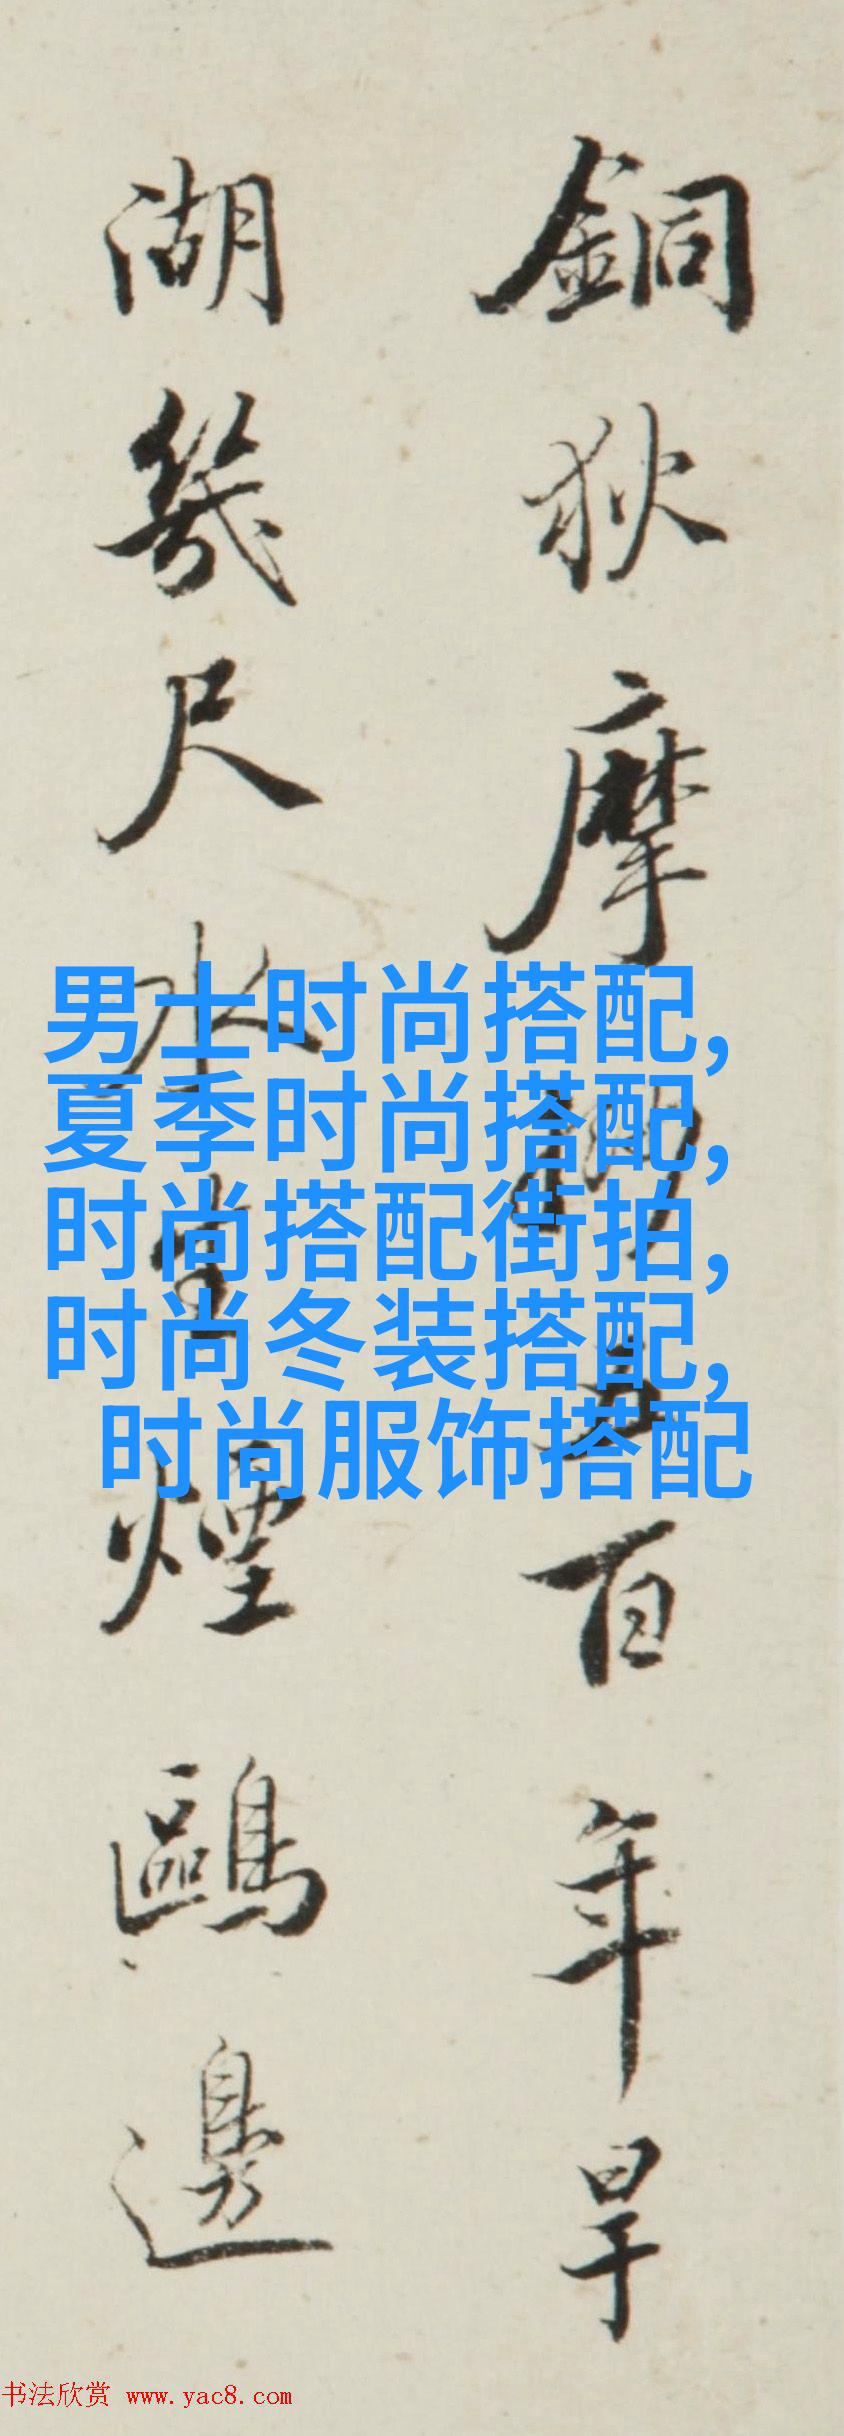 銅狄摩挲五百年早
湖幾尺水空煙鷗邊
男士时尚搭配,
夏季时尚搭配,
时尚搭配街拍,
时尚冬装搭配,
时尚服饰搭配
书法欣赏 www.yac8.com